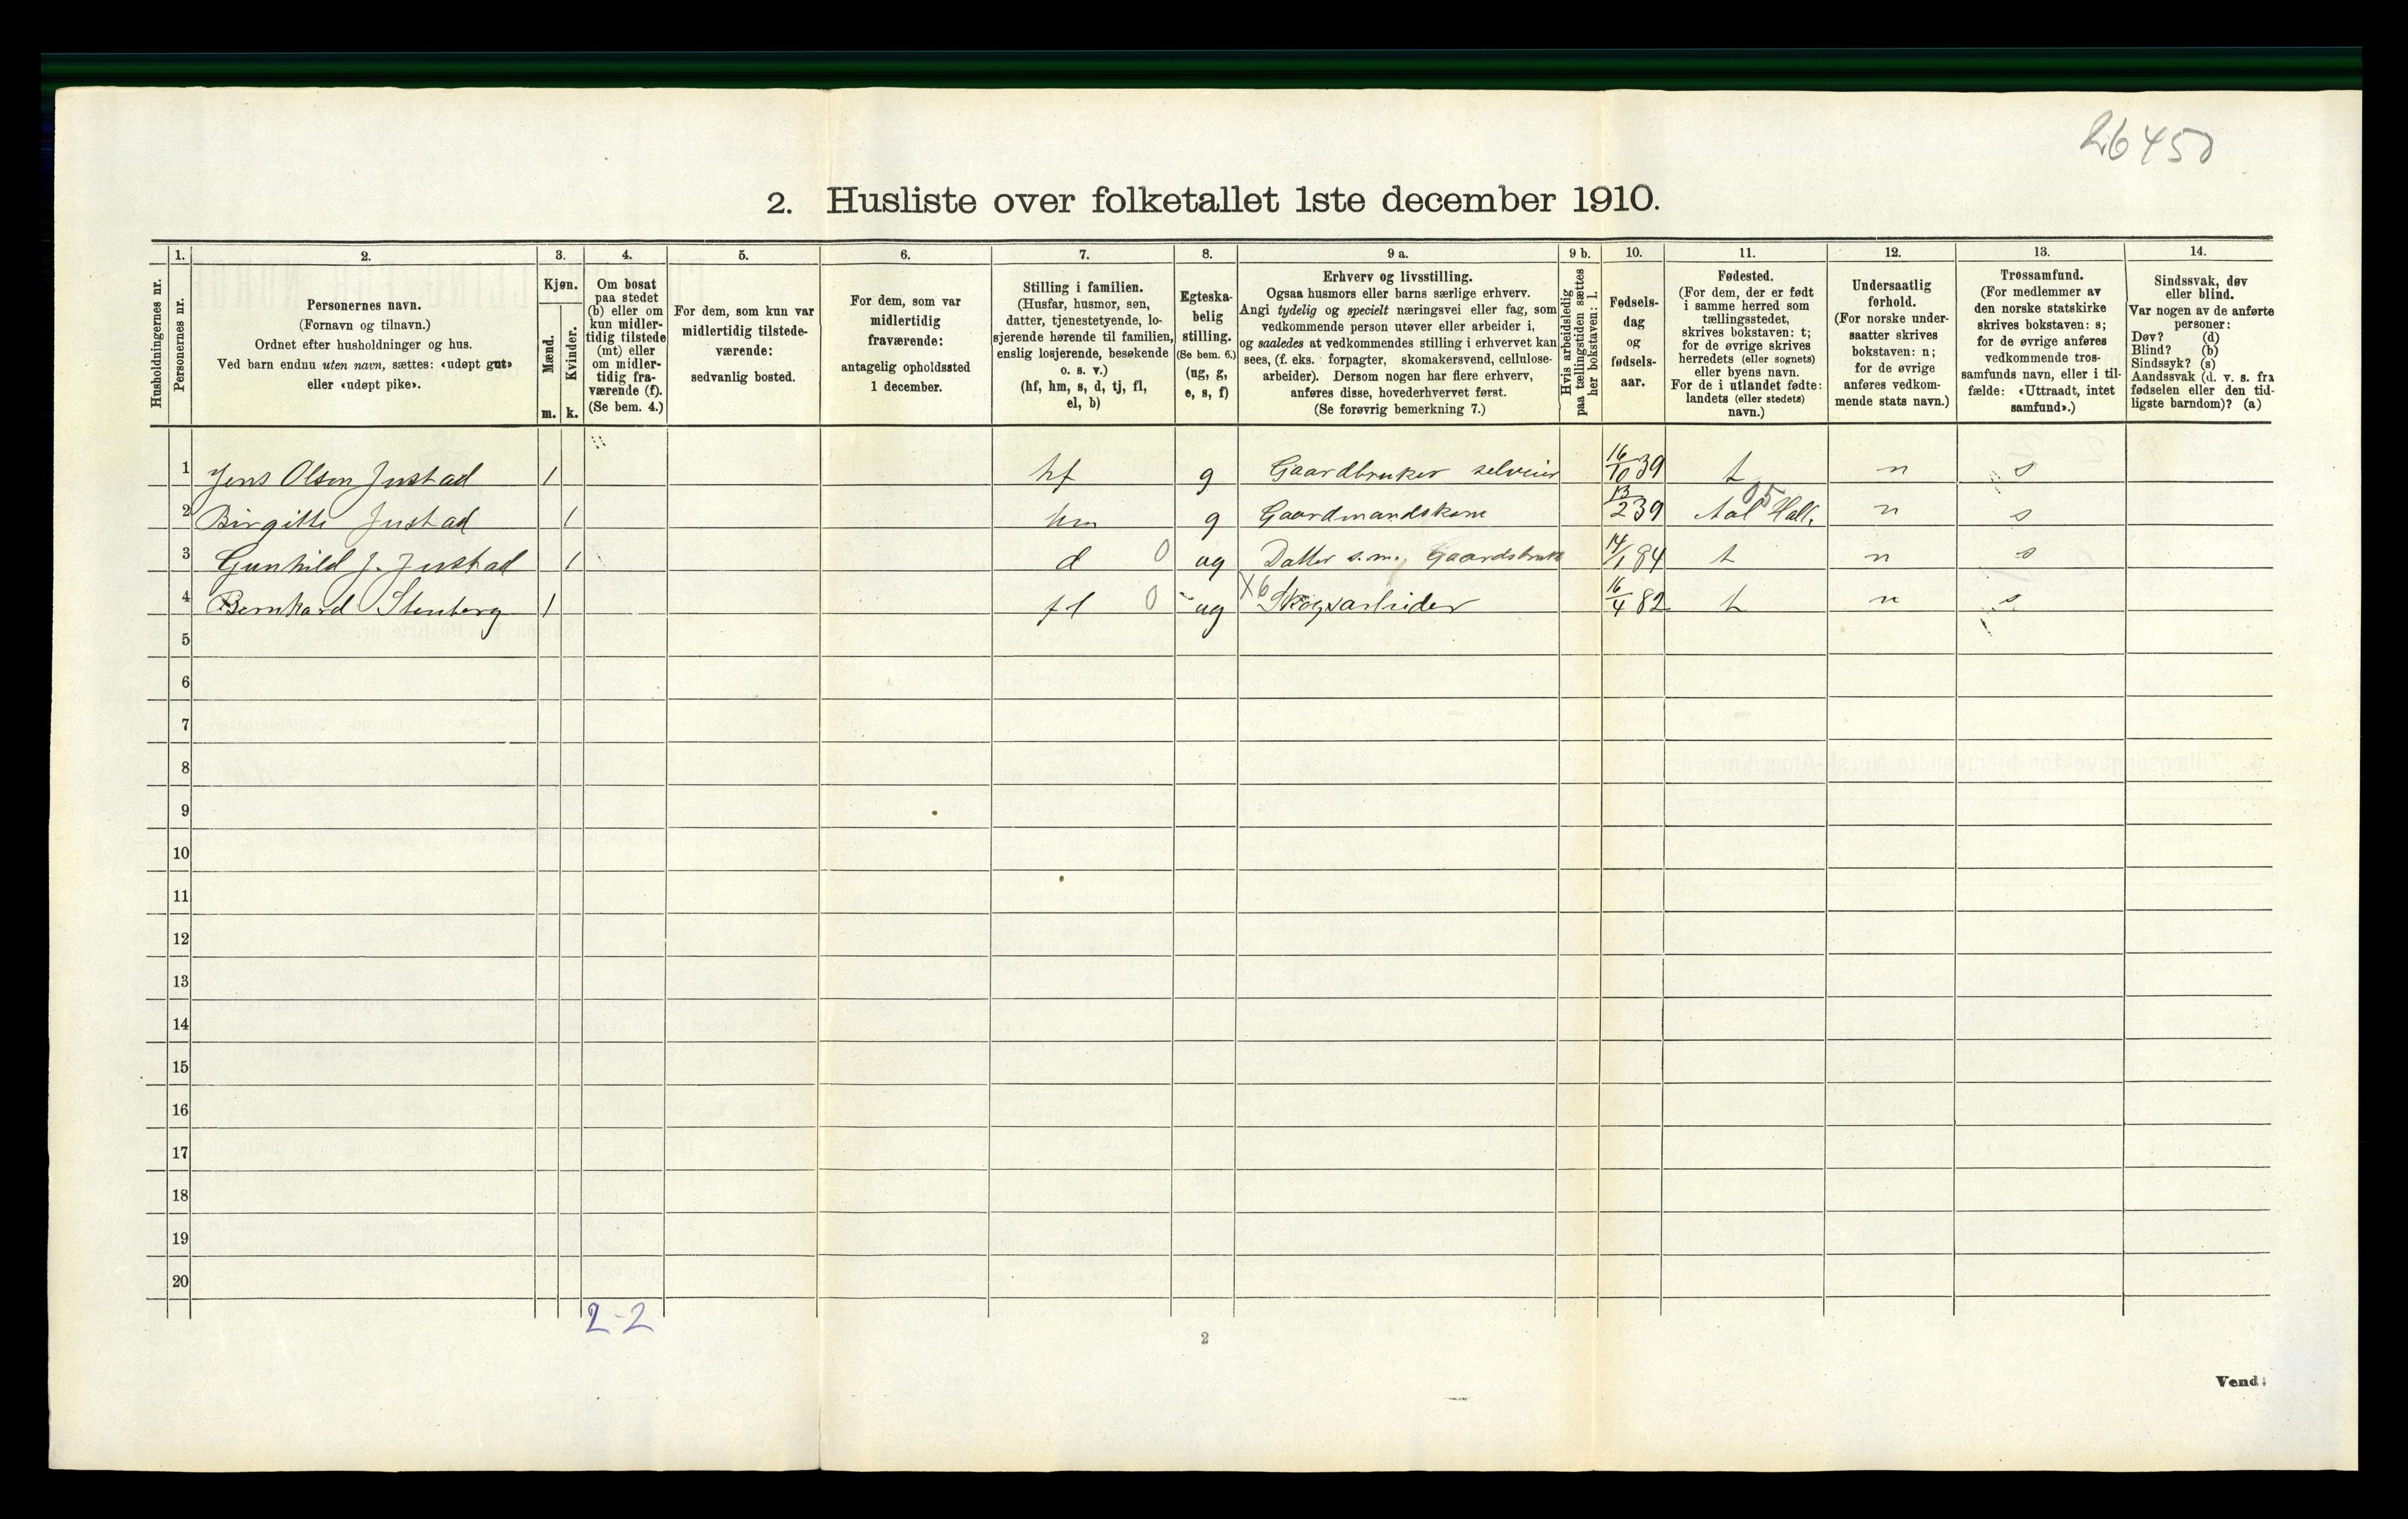 26450
2. Husliste over folketallet 1ste december 1910.
Husholdningernes nr.
1.
Personernes nr.
2.
Personernes navn.
(Fornavn og tilnavn.)
Ordnet efter husholdninger og hus.
Ved barn endnu uten navn, sættes: «udøpt gut»
eller «udøpt pike».
3.
Kjøn.
Mænd.
m.
Kvinder.
k.
4.
Om bosat
paa stedet
(b) eller om
kun midler-
tidig tilstede
(mt) eller
om midler-
tidig fra-
værende (f).
(Se bem. 4.)
5.
For dem, som kun var
midlertidig tilstede-
værende:
sedvanlig bosted.
6.
For dem, som var
midlertidig
fraværende:
antagelig opholdssted
1 december.
7.
Stilling i familien.
(Husfar, husmor, søn,
datter, tjenestetyende, lo-
sjerende hørende til familien,
enslig losjerende, besøkende
o. s. v.)
(hf, hm, s, d, tj, fl,
el, b)
8.
Egteska-
belig
stilling.
(Se bem. 6.)
(ug, g,
e, s, f)
9 a.
Erhverv og livsstilling.
Ogsaa husmors eller barns særlige erhverv.
Angi tydelig og specielt næringsvei eller fag, som
vedkommende person utøver eller arbeider i,
og saaledes at vedkommendes stilling i erhvervet kan
sees, (f. eks. forpagter, skomakersvend, cellulose-
arbeider). Dersom nogen har flere erhverv,
anføres disse, hovederhvervet først.
(Se forøvrig bemerkning 7.)
9 b.
Hvis arbeidsledig
paa tællingstiden sættes
her bokstaven: l.
10.
Fødsels-
dag
og
fødsels-
aar.
11.
Fødested.
(For dem, der er født
i samme herred som
tællingsstedet,
skrives bokstaven: t;
for de øvrige skrives
herredets (eller sognets)
eller byens navn.
For de i utlandet fødte:
landets (eller stedets)
navn.)
12.
Undersaatlig
forhold.
(For norske under-
saatter skrives
bokstaven: n;
for de øvrige
anføres vedkom-
mende stats navn.)
13.
Trossamfund.
(For medlemmer av
den norske statskirke
skrives bokstaven: s;
for de øvrige anføres
vedkommende tros-
samfunds navn, eller i til-
fælde: «Uttraadt, intet
samfund».)
14.
Sindssvak, døv
eller blind.
Var nogen av de anførte
personer:
Døv? (d)
Blind? (b)
Sindssyk? (s)
Aandssvak (d. v. s. fra
fødselen eller den tid-
ligste barndom)? (a)
1 Jens Olsen Justad 1 hf g Gaardbruker selveier 16/10 39 t n s
2 Birgitte Justad 1 hm g Gaardmandskone 13/2 39 Aal Hall. 05 n s
3 Gunhild J. Justad 1 d 0 ug Datter s.m. Gaardsbruk 14/1 84 t n s
4 Bernhard Stenberg 1 fl 0 ug X6 Skogsarbeider 16/4 82 t n s
5
6
7
8
9
10
11
12
13
14
15
16
17
18
19
20
2-2
2
Vend!